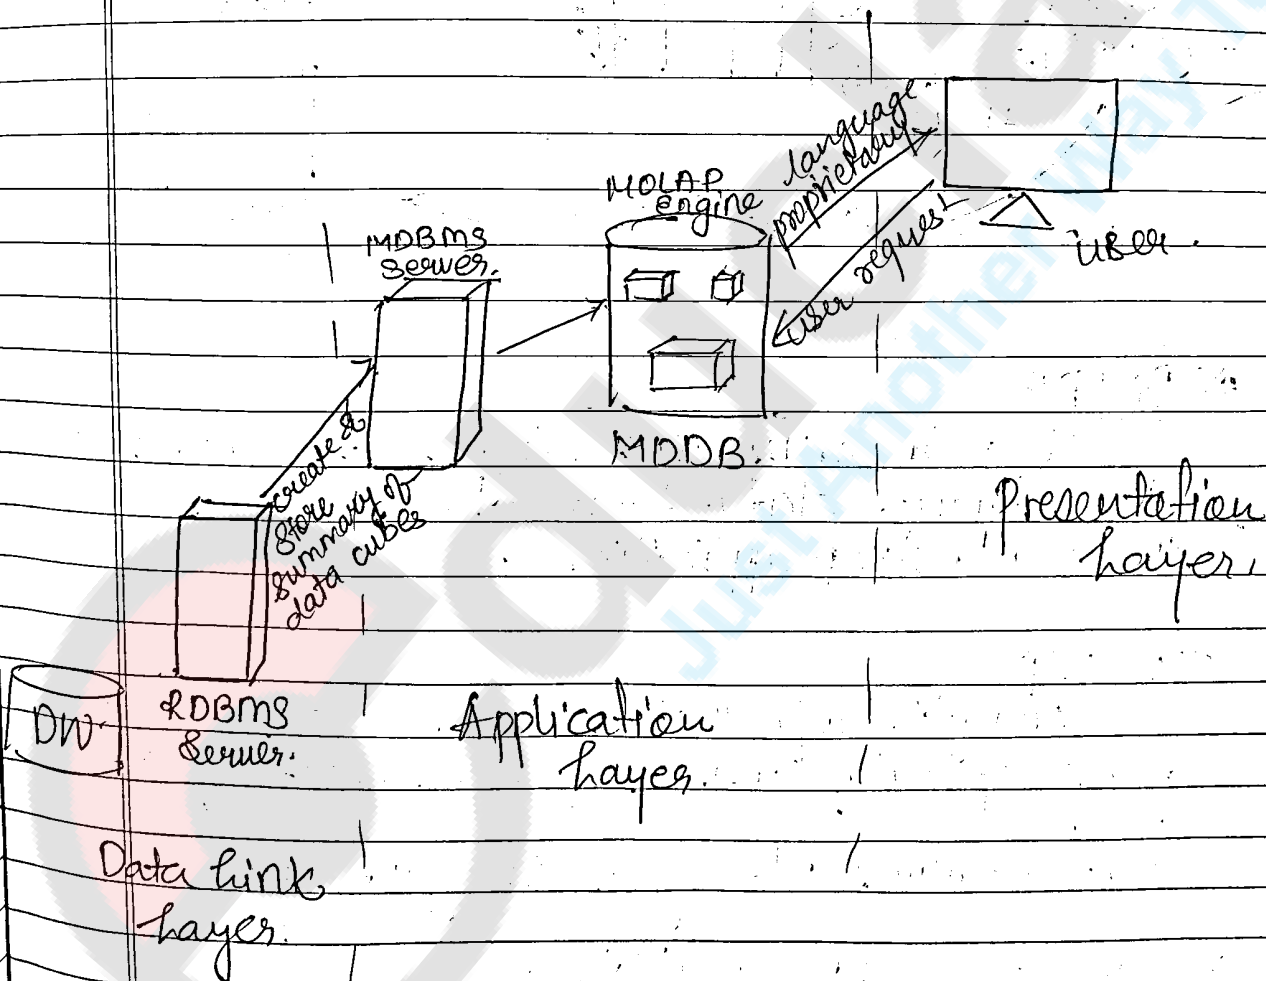 language
proprietary
MOLAP
engine
MDBMS
Server.
user request
user.
create &
store
summary of
data cubes
MDDB.
Presentation
Layer.
DW
RDBMS
Server.
Application
Layer.
Data Link
Layer.
Edula
Just Another Way To